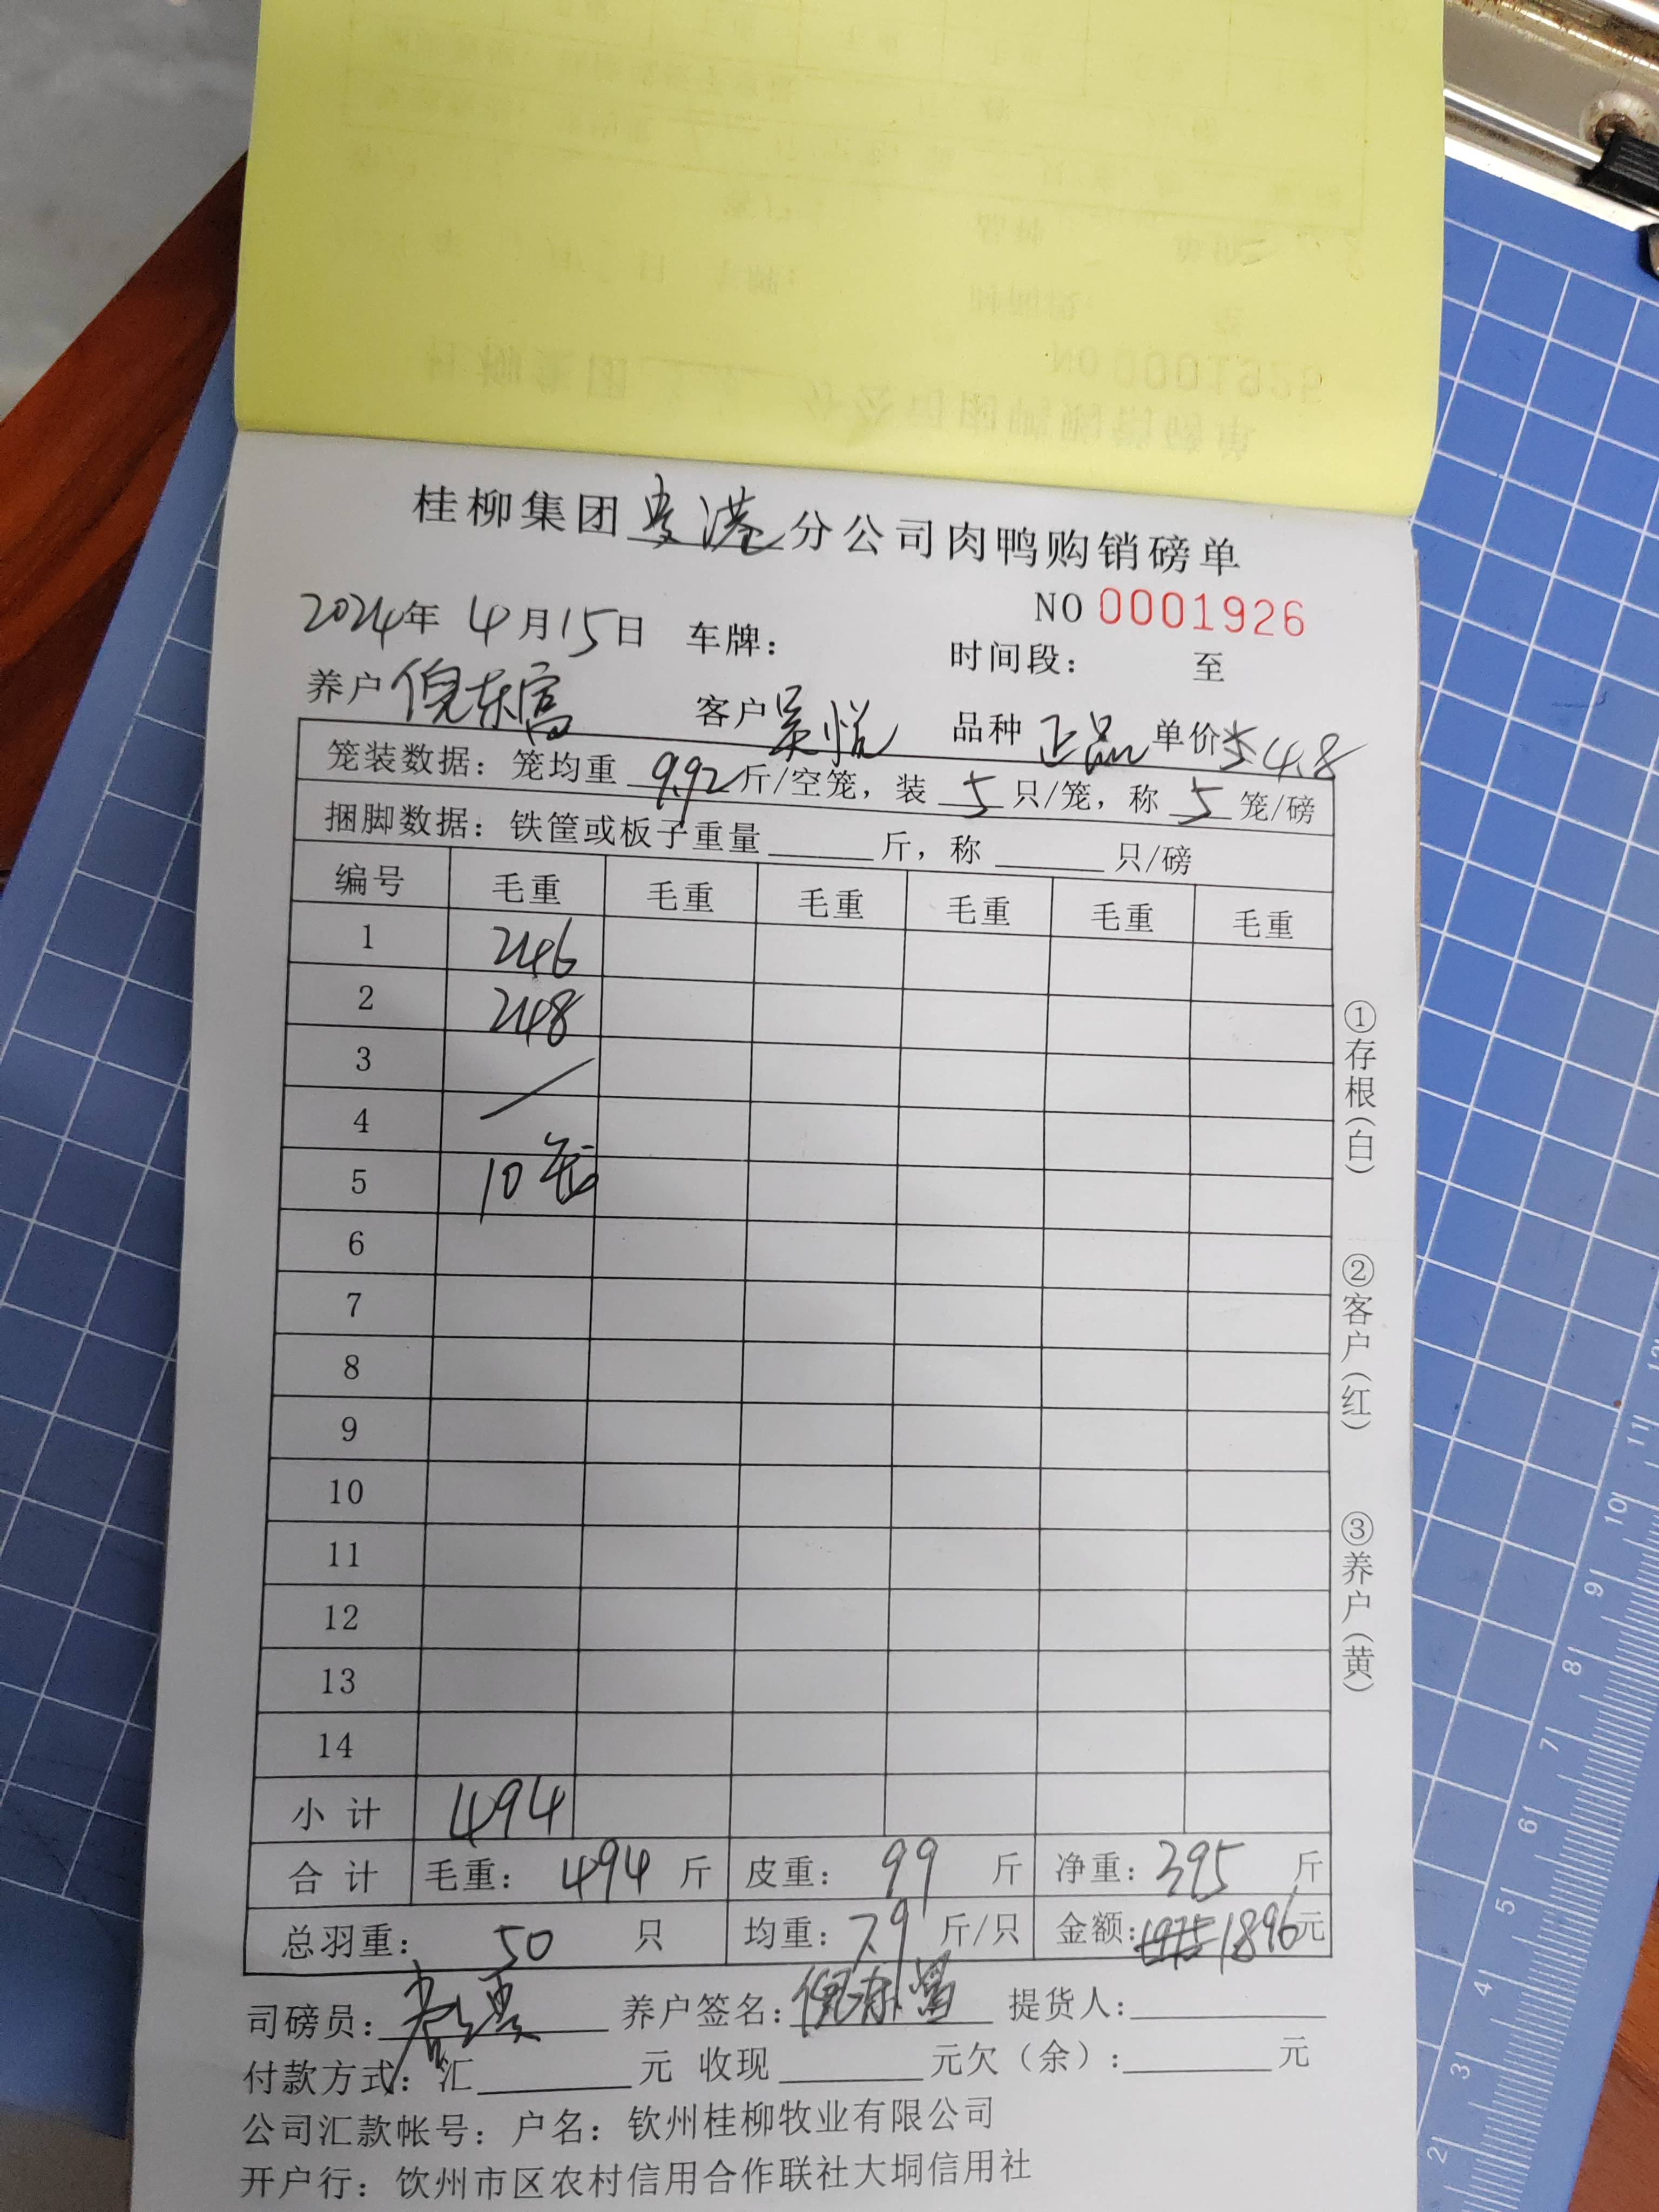 桂柳集团贵港分公司肉鸭购销磅单
NO 0001926
2024年 4月15日 车牌： 时间段： 至
养户 倪东富 客户 吴悦 品种 正品 单价 4.8
笼装数据：笼均重 9.92 斤/空笼，装 5 只/笼，称 5 笼/磅
捆脚数据：铁筐或板子重量______斤，称______只/磅
编号 毛重 毛重 毛重 毛重 毛重 毛重
1 246
2 248
3
4
5 10笼
6
7
8
9
10
11
12
13
14
小计 494
合计 毛重： 494 斤 皮重： 99 斤 净重：395 斤
总羽重： 50 只 均重：7.9 斤/只 金额：1975 1896元
司磅员： 养户签名：倪东富 提货人：
付款方式：汇______元 收现______元欠（余）：______元
公司汇款帐号：户名：钦州桂柳牧业有限公司
开户行：饮州市区农村信用合作联社大垌信用社
①存根（白）
②客户（红）
③养户（黄）